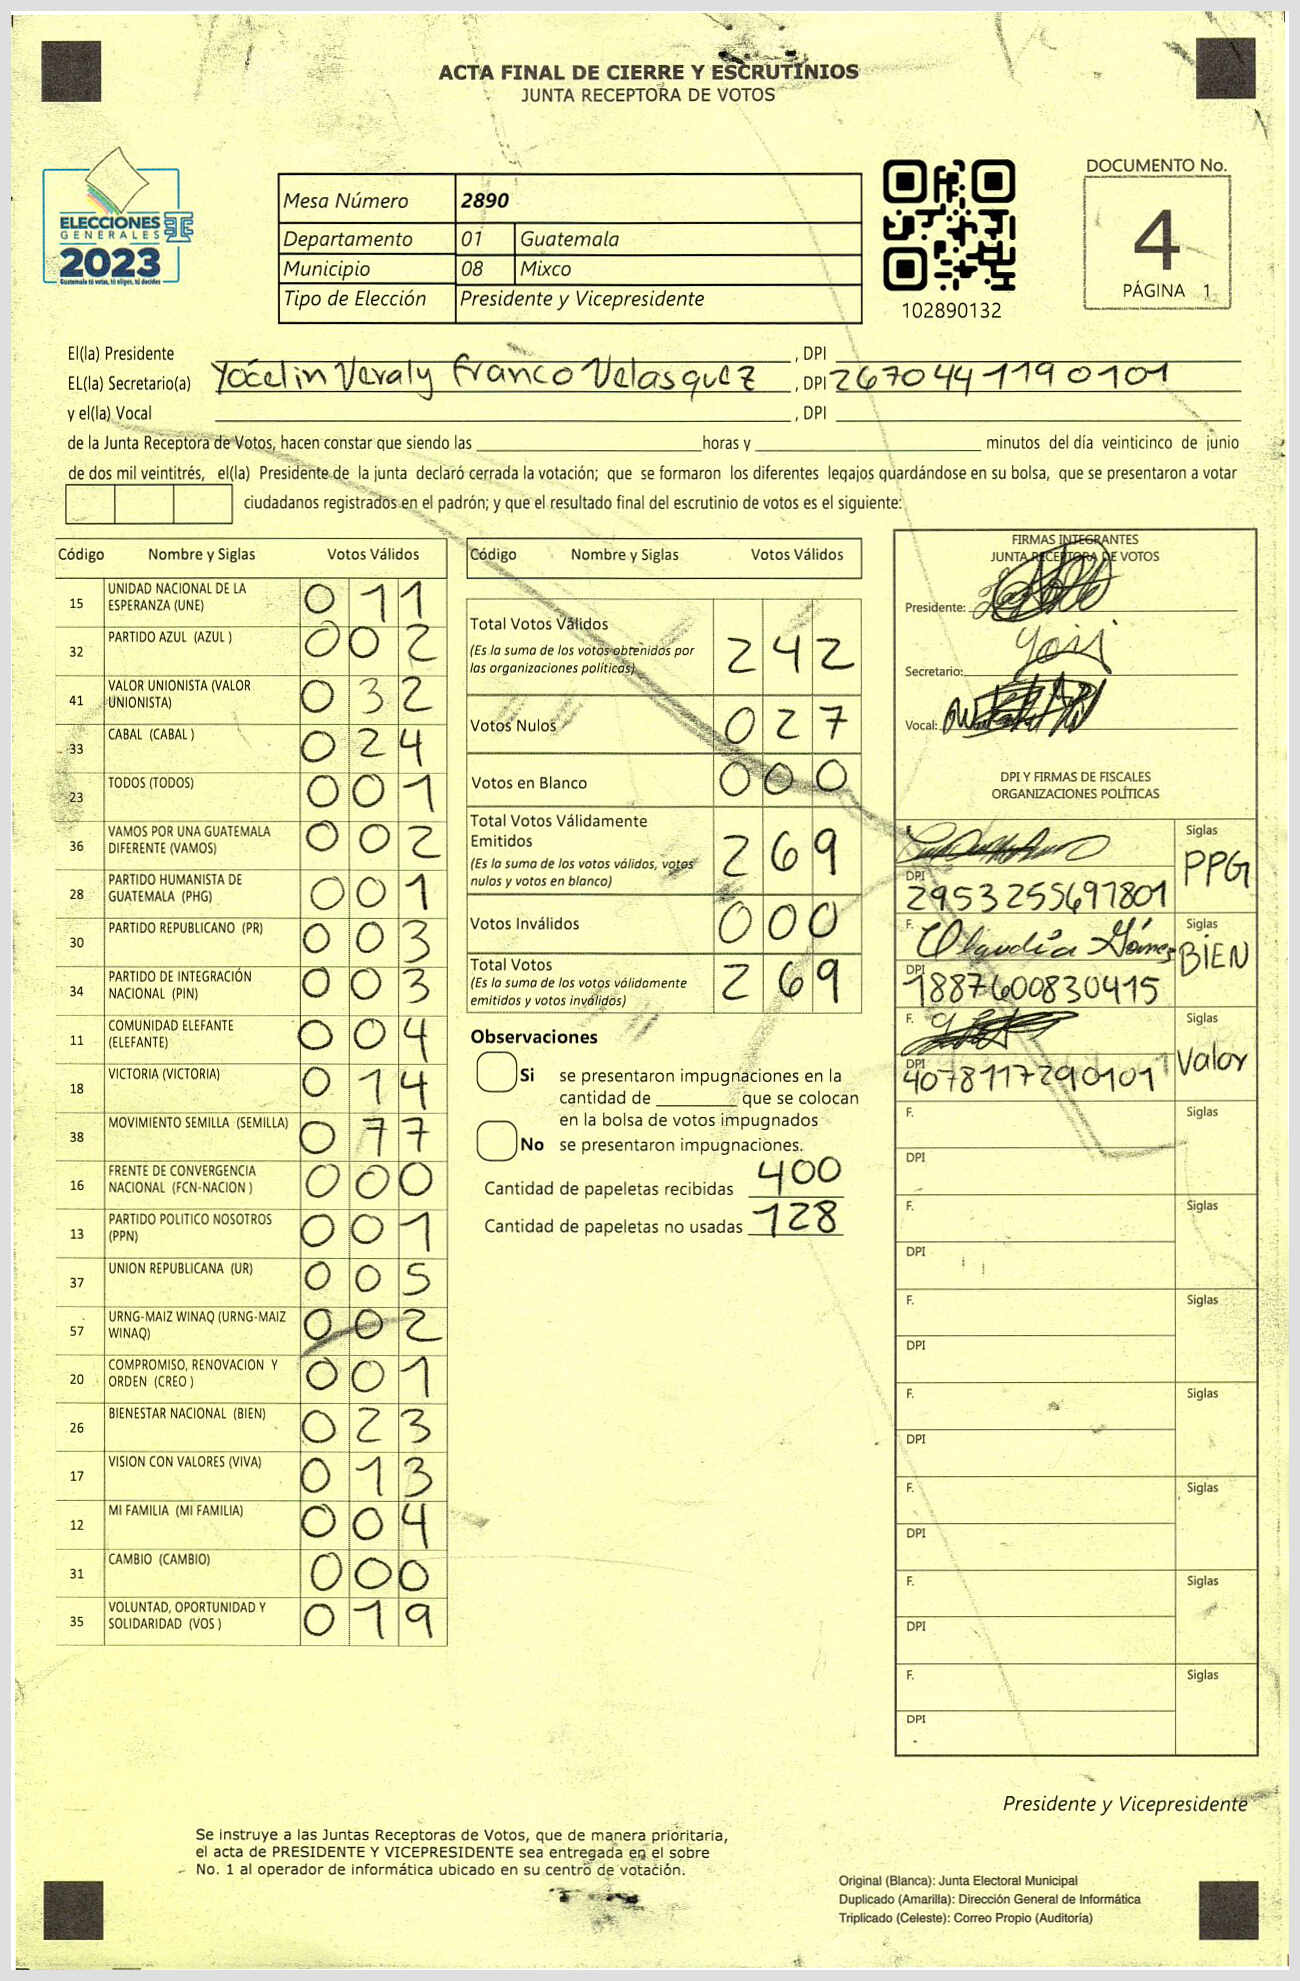 ACTA FINAL DE CIERRE Y ESCRUTINIOS
JUNTA RECEPTORA DE VOTOS
ELECCIONES
GENERALES
2023
Guatemala tú votas, tú eliges, tú decides
Mesa Número 2890
Departamento 01 Guatemala
Municipio 08 Mixco
Tipo de Elección Presidente y Vicepresidente
102890132
DOCUMENTO No.
4
PÁGINA 1
El(la) Presidente , DPI
EL(la) Secretario(a) Yocelin Veraly Franco Velasquez , DPI 2670441190101
y el(la) Vocal , DPI
de la Junta Receptora de Votos, hacen constar que siendo las horas y minutos del día veinticinco de junio
de dos mil veintitrés, el(la) Presidente de la junta declaró cerrada la votación; que se formaron los diferentes legajos quardándose en su bolsa, que se presentaron a votar
ciudadanos registrados en el padrón; y que el resultado final del escrutinio de votos es el siguiente:
Código Nombre y Siglas Votos Válidos
15 UNIDAD NACIONAL DE LA ESPERANZA (UNE) 011
32 PARTIDO AZUL (AZUL ) 002
41 VALOR UNIONISTA (VALOR UNIONISTA) 032
33 CABAL (CABAL ) 024
23 TODOS (TODOS) 001
36 VAMOS POR UNA GUATEMALA DIFERENTE (VAMOS) 002
28 PARTIDO HUMANISTA DE GUATEMALA (PHG) 001
30 PARTIDO REPUBLICANO (PR) 003
34 PARTIDO DE INTEGRACIÓN NACIONAL (PIN) 003
11 COMUNIDAD ELEFANTE (ELEFANTE) 004
18 VICTORIA (VICTORIA) 014
38 MOVIMIENTO SEMILLA (SEMILLA) 077
16 FRENTE DE CONVERGENCIA NACIONAL (FCN-NACION ) 000
13 PARTIDO POLITICO NOSOTROS (PPN) 001
37 UNION REPUBLICANA (UR) 005
57 URNG-MAIZ WINAQ (URNG-MAIZ WINAQ) 002
20 COMPROMISO, RENOVACION Y ORDEN (CREO ) 001
26 BIENESTAR NACIONAL (BIEN) 023
17 VISION CON VALORES (VIVA) 013
12 MI FAMILIA (MI FAMILIA) 004
31 CAMBIO (CAMBIO) 000
35 VOLUNTAD, OPORTUNIDAD Y SOLIDARIDAD (VOS ) 019
Código Nombre y Siglas Votos Válidos
Total Votos Válidos
(Es la suma de los votos obtenidos por
las organizaciones políticas) 242
Votos Nulos 027
Votos en Blanco 000
Total Votos Válidamente
Emitidos
(Es la suma de los votos válidos, votos
nulos y votos en blanco) 269
Votos Inválidos 000
Total Votos
(Es la suma de los votos válidamente
emitidos y votos inválidos) 269
Observaciones
Si se presentaron impugnaciones en la
cantidad de que se colocan
en la bolsa de votos impugnados
No se presentaron impugnaciones.
Cantidad de papeletas recibidas 400
Cantidad de papeletas no usadas 128
FIRMAS INTEGRANTES
JUNTA RECEPTORA DE VOTOS
Presidente:
Secretario:
Vocal:
DPI Y FIRMAS DE FISCALES
ORGANIZACIONES POLÍTICAS
Siglas PPG
DPI 2953255697801
F. Claudia Gómez Siglas BIEN
DPI 1887600830415
F. Siglas Valor
DPI 4078117290101
F. Siglas
DPI
F. Siglas
DPI
F. Siglas
DPI
F. Siglas
DPI
F. Siglas
DPI
F. Siglas
DPI
F. Siglas
DPI
Presidente y Vicepresidente
Se instruye a las Juntas Receptoras de Votos, que de manera prioritaria,
el acta de PRESIDENTE Y VICEPRESIDENTE sea entregada en el sobre
No. 1 al operador de informática ubicado en su centro de votación.
Original (Blanca): Junta Electoral Municipal
Duplicado (Amarilla): Dirección General de Informática
Triplicado (Celeste): Correo Propio (Auditoría)